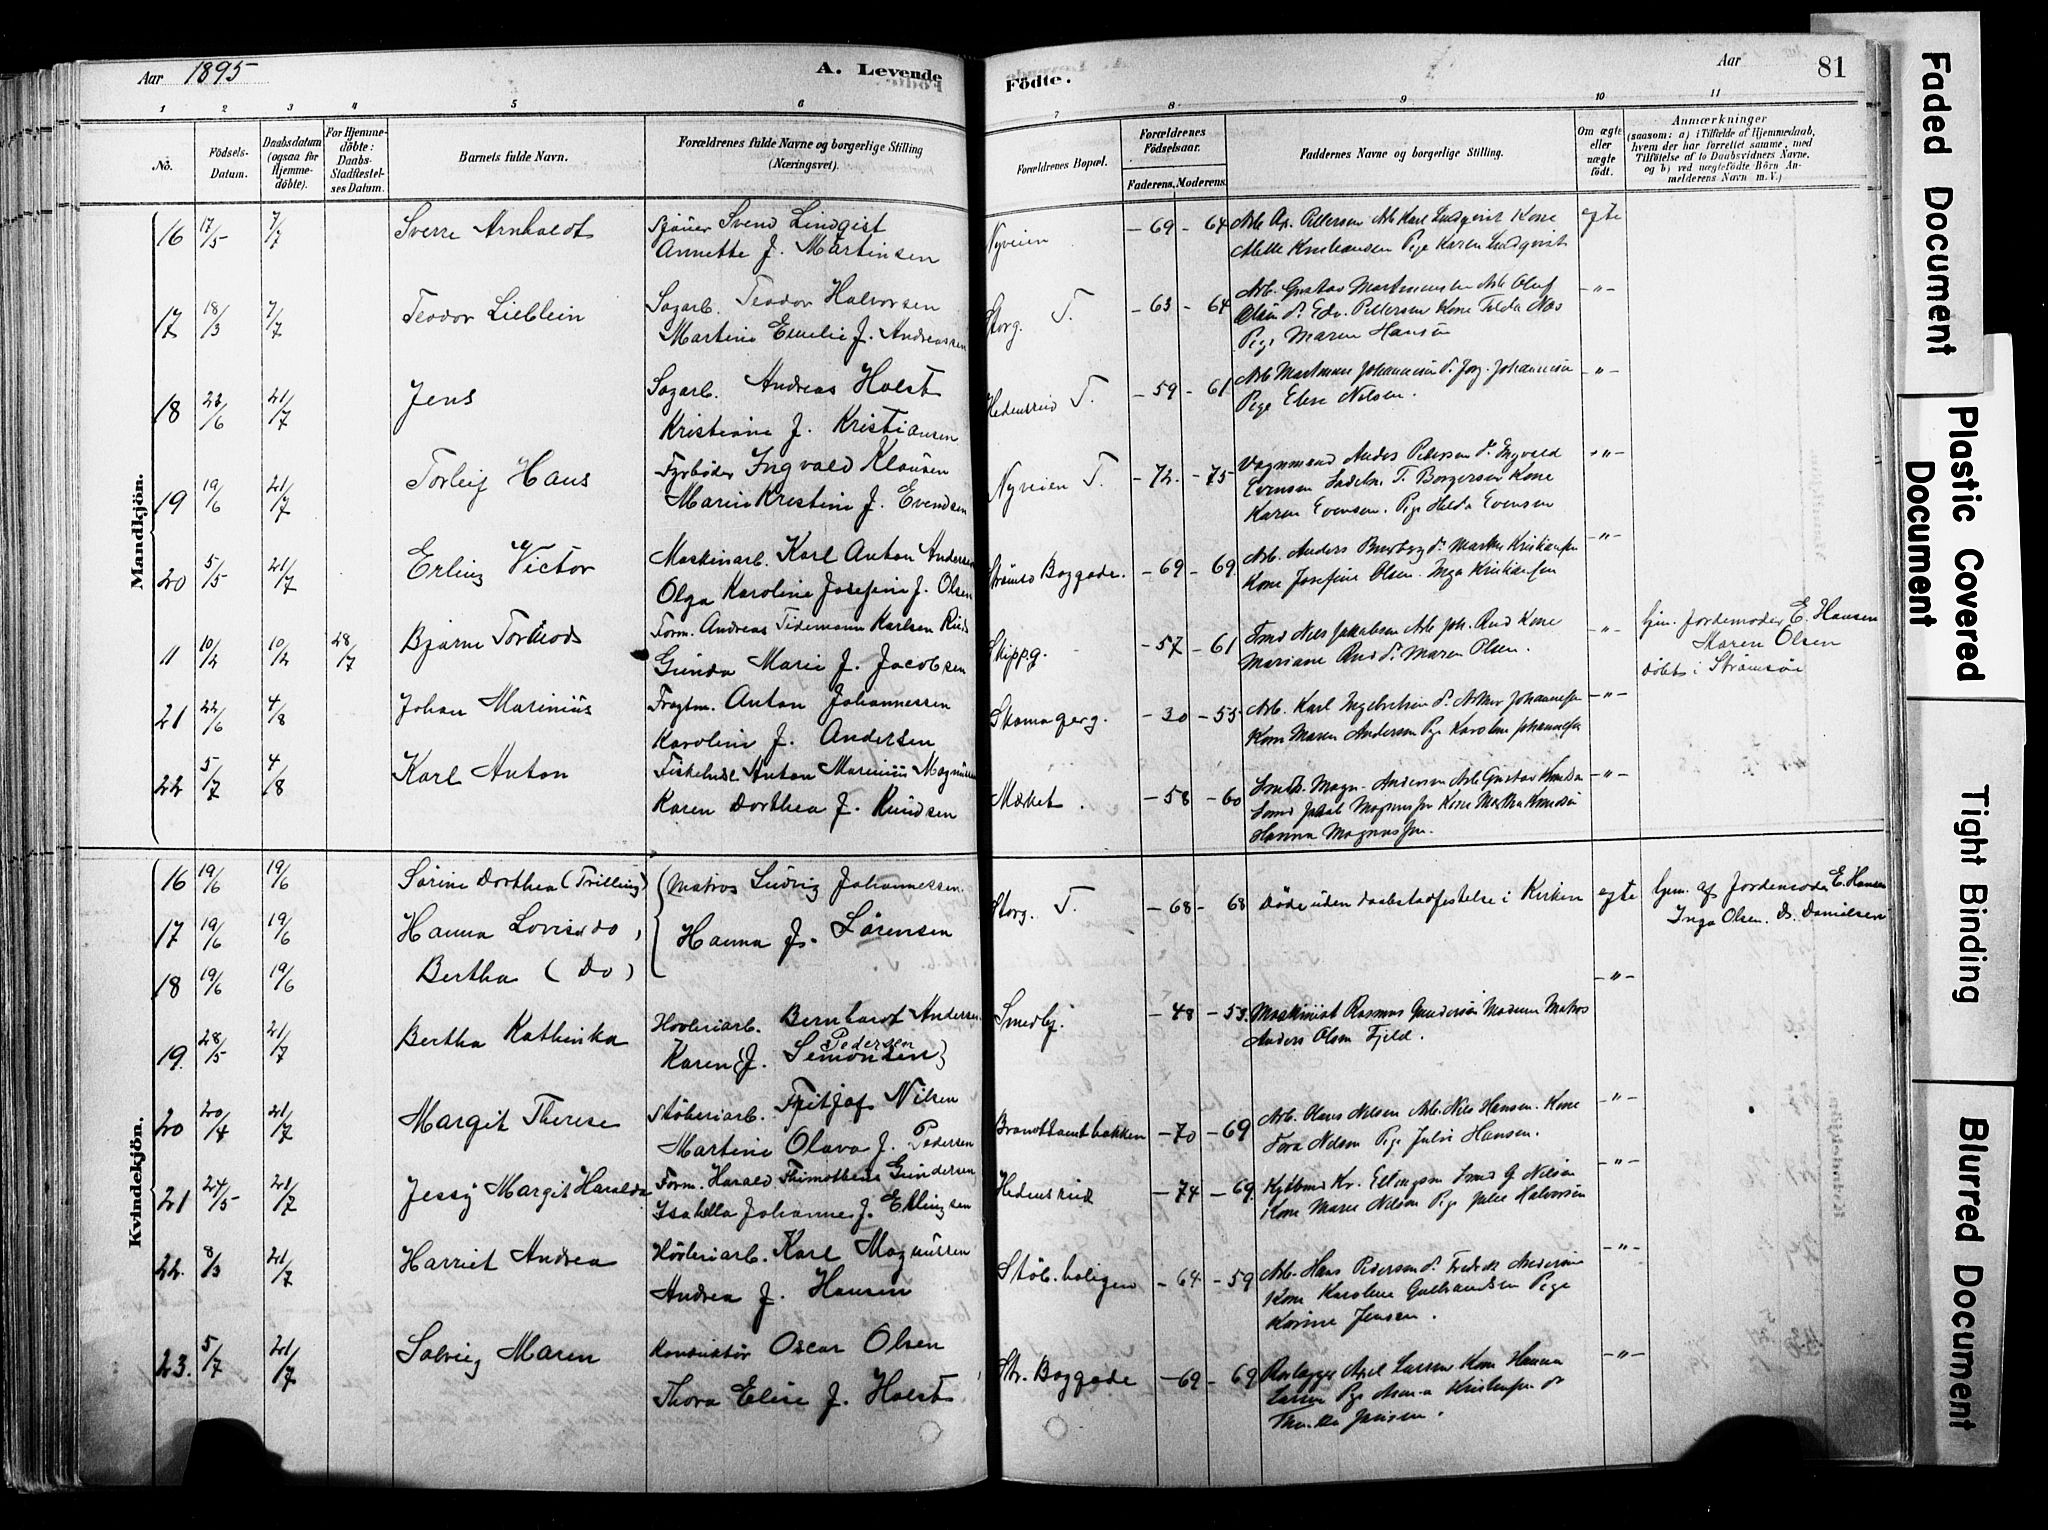 Aar 1895
A. Levende
Födte.
Aar
81
1 2 3 4 5 6 7 8 9 10 11
No.
Födsels-
Datum.
Daabsdatum
(ogsaa for
Hjemme-
döbte).
For Hjemme-
döbte:
Daabs-
Stadfæstel-
ses Datum.
Barnets fulde Navn.
Forældrenes fulde Navne og borgerlige Stilling
(Næringsvei).
Forældrenes Bopæl.
Forældrenes
Födselsaar.
Faderens. Moderens.
Faddernes Navne og borgerlige Stilling.
Om ægte
eller
uægte
født.
Anmærkninger
(saasom: a) i Tilfælde af Hjemmedaab,
hvem der har forrettet samme, med
Tilføielse af to Daabsvidners Navne,
og b) ved uægtefødte Börn An-
melderens Navn m. V.)
Mandkjön.
16 17/5 7/7 Sverre Arnholdt
Sjauer Svend Lindqist
Annette J. Martinsen
Nyveien -69 -64
Arb. Ax. Pettersen Arb Karl Lindqvist Kone
Kristiansen Pige Karen Lindqvist
egte
17 18/3 7/7 Teodor Lieblein
Sagarb. Teodor Halvorsen
Martine Emelie J. Andreassen
Storg. T. -63 -64
Arb. Gustav Martinsen Arb Oluf
Olsen S. Edv. Pettersen Kone Tilda Næs
Pige Maren Hansen
-"-
18 23/6 21/7 Jens
Sagarb. Andreas Holst
Kristiane J. Kristiansen
Hedensrud T. -59 -61
Arb Martinius Johannesen S. Jörg. Johannesen
Pige Elise Nilsen.
-"-
19 19/6 21/7 Torleif Hans
Fyrböder Ingvald Klausen
Marie Kristine J. Evensen
Nyveien T. -72. -75
Vognmand Anders Petersen S. Ingvald
Evensen T. Borgersen Kone
Karen Evensen. Pige Hilda Evensen
-"-
20 5/5 21/7 Erling Victor
Maskinarb. Karl Anton Andersen
Olga Karoline Josefine J. Olsen
Strömsö Baggade. -69 -69
Arb. Anders S. Martin Kristiansen
Kone Josefine Olsen. Inga Kristiansen
-"-
11 10/2 10/2 28/7 Bjarne Tormods
Form. Andreas Tidemann Karlsen Ruds
Gunda Marie J. Jacobsen
Skippg. -57 -61
Smed Nils Jakobsen Arb. Joh. Rud Kone
Mariane Rud S. Maren Olsen.
-"-
hjm. Jordemoder E. Hansen
Maren Olsen
döbt i Strömsöe
21 22/6 4/8 Johan Marinius
Fragtm. Anton Johannessen
Karoline J. Andersen
Skomagerg. -30 -55
Arb. Karl Ingebretsen S. Arthur Johannesen
Kone Maren Andersen Pige Karoline Johannesen
-"-
22 5/7 4/8 Karl Anton
Fiskehndl Anton Marinius Magnussen
Karen Dorthea J. Knudsen
Market. -58 -60
Smed. Magn. Andersen Arb Gustav Knudsen
Smed Jakob Magnussen Kone Martha Knudsen
Hanna Magnussen.
-"-
Kvindekjön.
16 19/6 19/6 Sörine Dorthea (Trilling)
17 19/6 19/6 Hanna Lovise do)
18 19/6 19/6 Bertha (Do)
Matros Ludvig Johannessen.
Hanna J. Sörensen
Storg. T. -68 -68
Döde uden daabstadfestelse i Kirken
egte
-"-
hjm. af Jordemoder E. Hansen
Inga Olsen. D. Danielsen
19. 28/5 21/7 Bertha Kathinka
Hövleriarb. Bernhardt Andersen
Karen (J. Pedersen Semonsen)
Smedbj. -48 -53.
Maskinist Rasmus Gundersen Madame Matros
Anders Olsen Fjeld.
20 20/4 21/7 Margit Therese
Stöberiarb. Fritjof Nilsen
Martine Olava J. Pedersen
Brandttomtbakken -70 -69
Arb. Olaus Nilsen Arb. Nils Hansen. Kone
Tora Nilsen Pige Julie Hansen.
-"-
21 24/5 21/7 Jessy Margit Haralda
Form. Harald Thimotheus Gundersen
Isabella Johanne J. Ellingsen
Hedensrud -74 -69.
Kr. Ellingsen Smed G. Nilsen
Kone Marie Nilsen Pige Julie Halvorsen
-"-
22. 8/3 21/7 Harriet Andrea
Hövleriarb. Karl Magnussen
Andrea J. Hansen
Stöb. boligen -64 -59
Arb. Hans Pedersen S. Fredrik Andersen
Kone Karoline Gulbrandsen Pige
Karine Jensen.
-"-
23. 5/7 21/7 Solveig Maren
Konduktör Oscar Olsen
Thora Elise J. Holst
Str. Baggade -69 -69
Axel Larsen Kone Hanna
Larsen Pige Kristensen S.
Jensen.
-"-
Faded Document
Plastic Covered Document
Tight Binding
Blurred Document